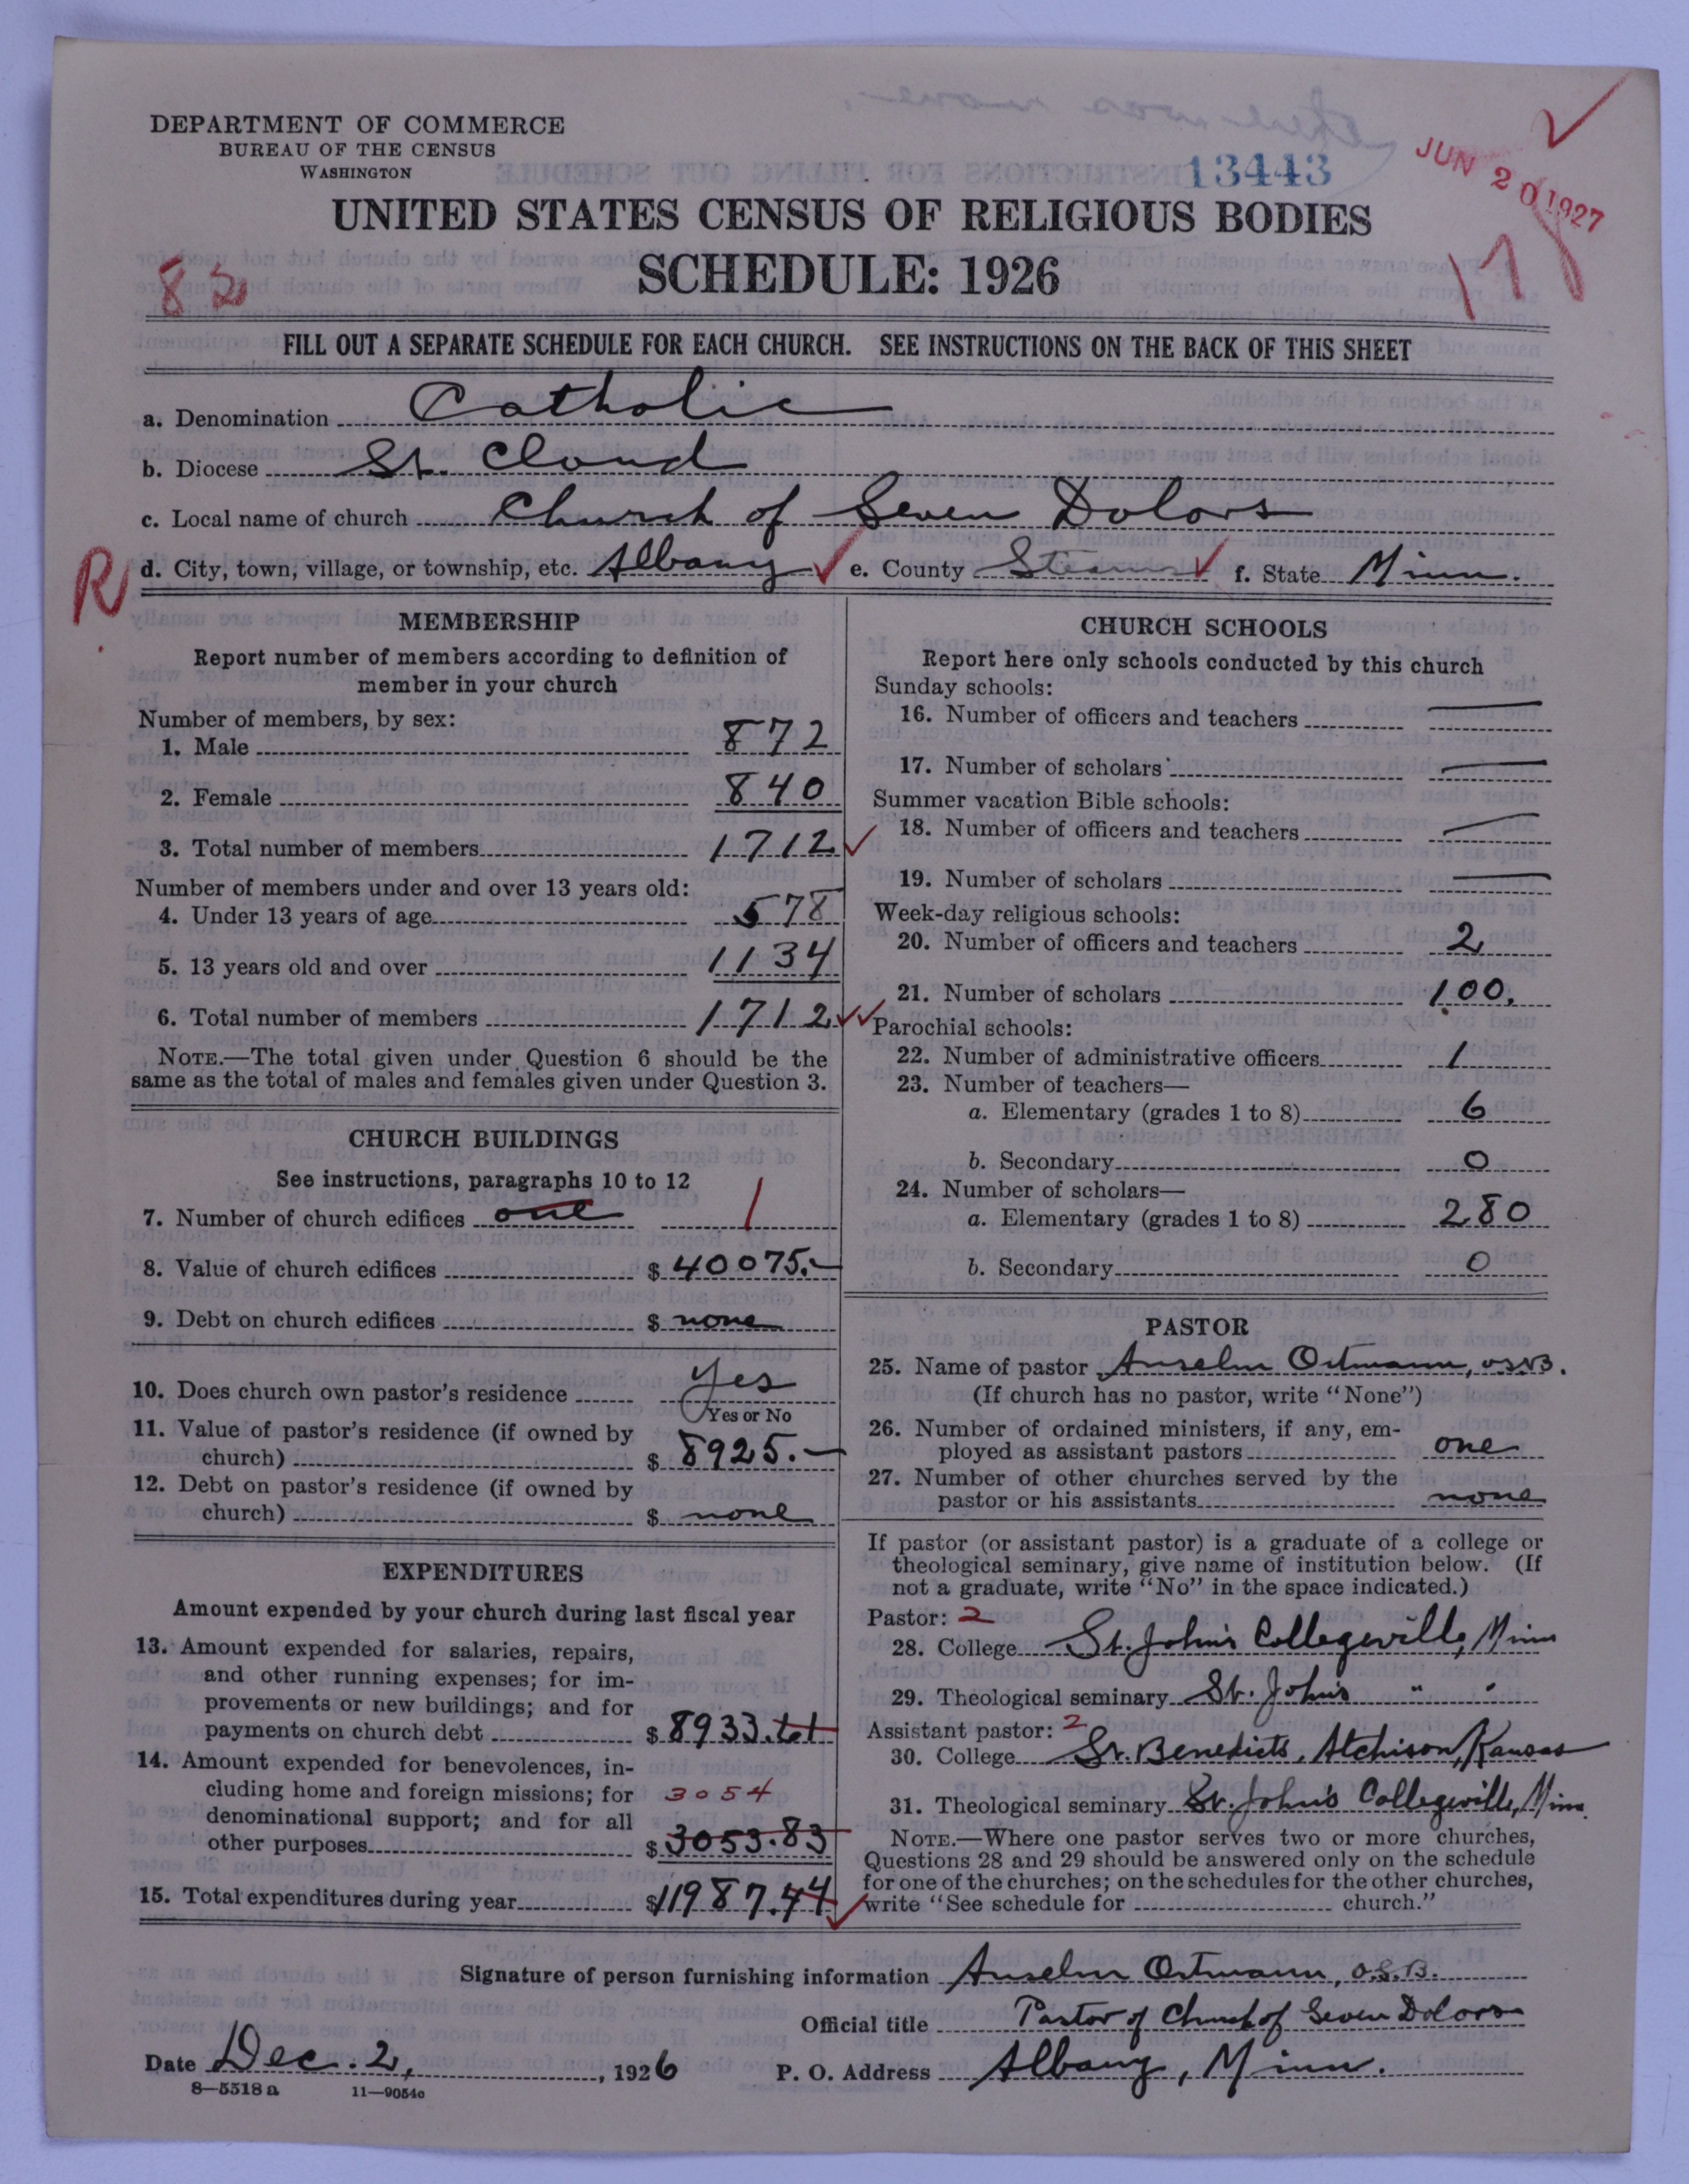 DEPARTMENT OF COMMERCE
BUREAU OF THE CENSUS
WASHINGTON
13443
JUN 20 1927
UNITED STATES CENSUS OF RELIGIOUS BODIES
SCHEDULE: 1926
82
FILL OUT A SEPARATE SCHEDULE FOR EACH CHURCH. SEE INSTRUCTIONS ON THE BACK OF THIS SHEET
a. Denomination Catholic
b. Diocese St. Cloud
c. Local name of church Church of Seven Dolors
R d. City, town, village, or township, etc. Albany e. County Stearns f. State Minn.
MEMBERSHIP
Report number of members according to definition of
member in your church
Number of members, by sex:
1. Male 872
2. Female 840
3. Total number of members 1712
Number of members under and over 13 years old:
4. Under 13 years of age 578
5. 13 years old and over 1134
6. Total number of members 1712
NOTE.—The total given under Question 6 should be the
same as the total of males and females given under Question 3.
CHURCH BUILDINGS
See instructions, paragraphs 10 to 12
7. Number of church edifices one 1
8. Value of church edifices $ 40075.—
9. Debt on church edifices $ none
10. Does church own pastor's residence Yes
Yes or No
11. Value of pastor's residence (if owned by
church) $ 8925.—
12. Debt on pastor's residence (if owned by
church) $ none
EXPENDITURES
Amount expended by your church during last fiscal year
13. Amount expended for salaries, repairs,
and other running expenses; for im-
provements or new buildings; and for
payments on church debt $ 8933.61
14. Amount expended for benevolences, in-
cluding home and foreign missions; for 3054
denominational support; and for all
other purposes $ 3053.83
15. Total expenditures during year $11987.44
CHURCH SCHOOLS
Report here only schools conducted by this church
Sunday schools:
16. Number of officers and teachers —
17. Number of scholars —
Summer vacation Bible schools:
18. Number of officers and teachers —
19. Number of scholars —
Week-day religious schools:
20. Number of officers and teachers 2
21. Number of scholars 100.
Parochial schools:
22. Number of administrative officers 1
23. Number of teachers—
a. Elementary (grades 1 to 8) 6
b. Secondary 0
24. Number of scholars—
a. Elementary (grades 1 to 8) 280
b. Secondary 0
PASTOR
25. Name of pastor Anselm Ortmann, O.S.B.
(If church has no pastor, write "None")
26. Number of ordained ministers, if any, em-
ployed as assistant pastors one
27. Number of other churches served by the
pastor or his assistants none
If pastor (or assistant pastor) is a graduate of a college or
theological seminary, give name of institution below. (If
not a graduate, write "No" in the space indicated.)
Pastor: 2
28. College St. John's Collegeville, Minn
29. Theological seminary St. John's " "
Assistant pastor: 2
30. College St. Benedicts, Atchison, Kansas
31. Theological seminary St. John's Collegeville, Minn.
NOTE.—Where one pastor serves two or more churches,
Questions 28 and 29 should be answered only on the schedule
for one of the churches; on the schedules for the other churches,
write "See schedule for church."
Signature of person furnishing information Anselm Ortmann, O.S.B.
Official title Pastor of Church of Seven Dolors
Date Dec. 2, 1926 P. O. Address Albany, Minn.
8—5518 a 11—9054c